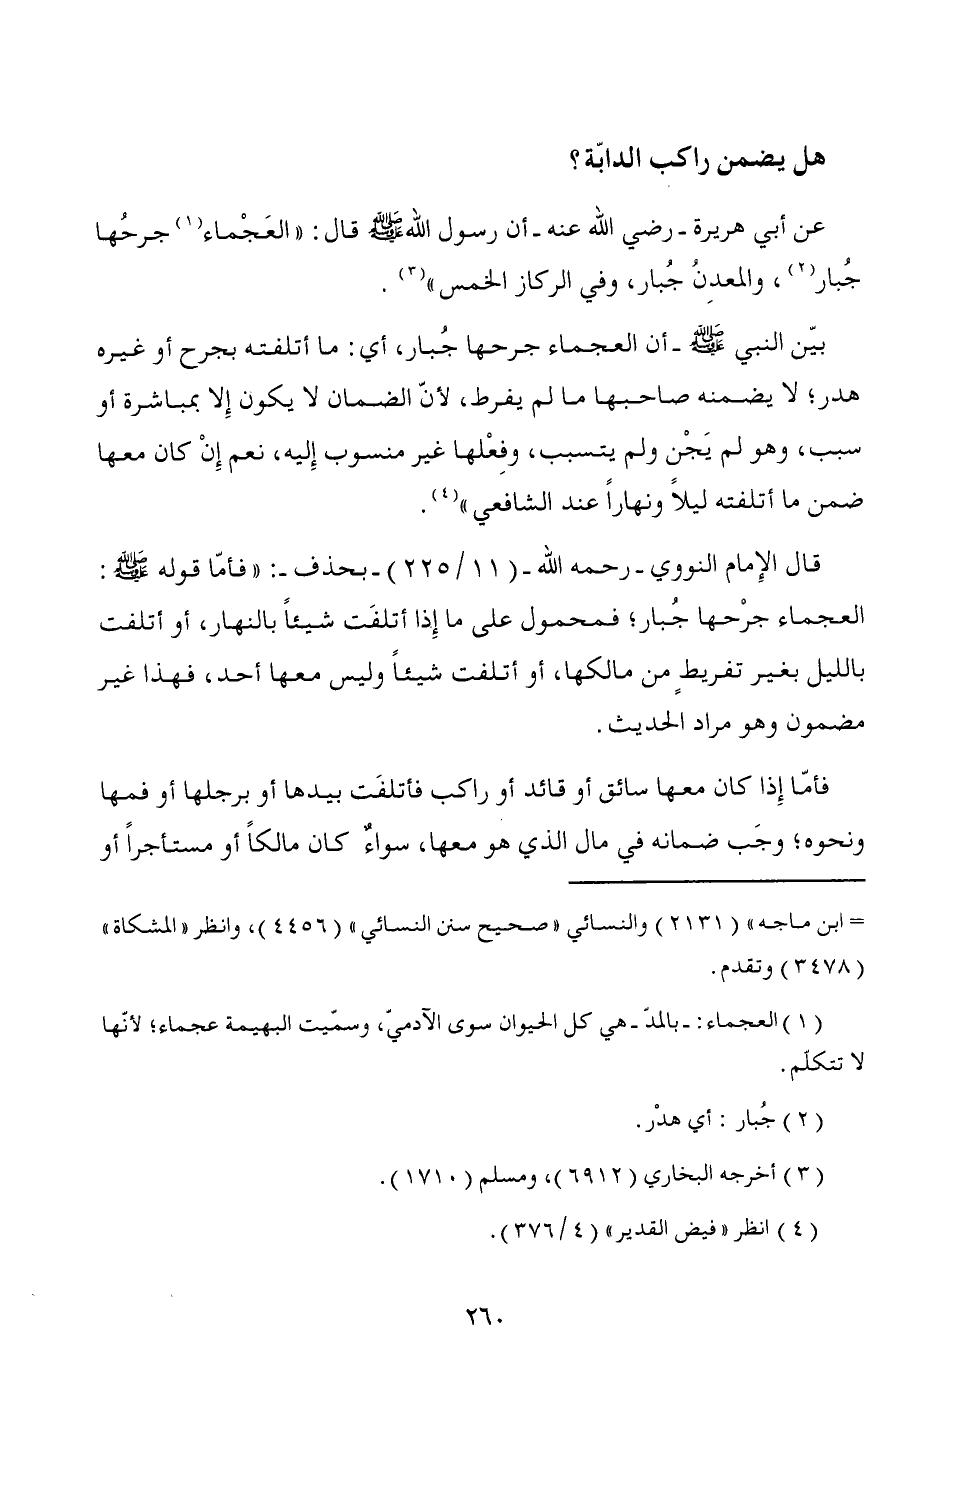 هل يضمن راكب الدابّة؟
عن أبي هريرة ـ رضي الله عنه ـ أن رسول الله ﷺ قال: «العَجْماء(١) جرحُها
جُبار(٢)، والمعدنُ جُبار، وفي الركاز الخمس»(٣).
بيّن النبي ﷺ ـ أن العجماء جرحها جُبار، أي: ما أتلفته بجرح أو غيره
هدر؛ لا يضمنه صاحبها ما لم يفرط، لأنّ الضمان لا يكون إلا بمباشرة أو
سبب، وهو لم يَجْنِ ولم يتسبب، وفعْلها غير منسوب إليه، نعم إنْ كان معها
ضمن ما أتلفته ليلاً ونهاراً عند الشافعي»(٤).
قال الإمام النووي ـ رحمه الله ـ (١١/ ٢٢٥) ـ بحذف ـ: «فأمّا قوله ﷺ:
العجماء جرْحها جُبار؛ فمحمول على ما إذا أتلفَت شيئاً بالنهار، أو أتلفت
بالليل بغير تفريطٍ من مالكها، أو أتلفت شيئاً وليس معها أحد، فهذا غير
مضمون وهو مراد الحديث.
فأمّا إذا كان معها سائق أو قائد أو راكب فأتلفَت بيدها أو برجلها أو فمها
ونحوه؛ وجَب ضمانه في مال الذي هو معها، سواءٌ كان مالكاً أو مستأجراً أو
= ابن ماجه» (٢١٣١) والنسائي «صحيح سنن النسائي» (٤٤٥٦)، وانظر «المشكاة»
(٣٤٧٨) وتقدم.
(١) العجماء: ـ بالمدّ ـ هي كل الحيوان سوى الآدميّ، وسمّيت البهيمة عجماء؛ لأنّها
لا تتكلّم.
(٢) جُبار: أي هدْر.
(٣) أخرجه البخاري (٦٩١٢)، ومسلم (١٧١٠).
(٤) انظر «فيض القدير» (٤/ ٣٧٦).
٢٦٠